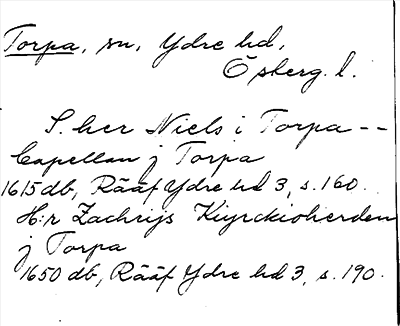 Torpa, sn, Ydre hd,
Ö sberg. l.
S. her Niels i Torpa --
Capellan j Torpa
1615 db, Rääf Ydre hd 3, s. 160.
H:r Zachrijs Kiyrckioherden
j Torpa
1650 db, Rääf Ydre hd 3, s. 190.